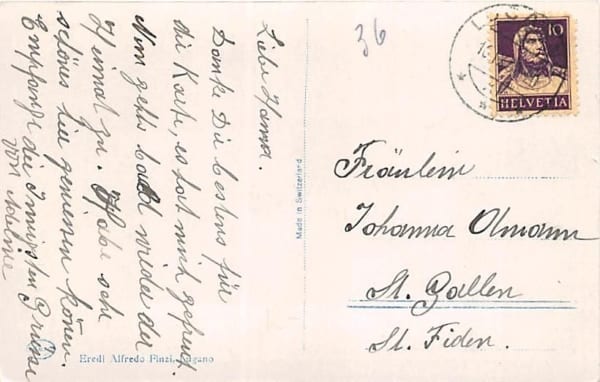 Liebe Hanna.
Danke Dir bestens für
die Karte, es hat mich gefreut.
Nun gehts bald wieder der
Heimat zu. Habe sehr
schönes hier geniessen können.
Empfange die innigsten Grüsse
von
36
10
HELVETIA
Made in Switzerland
Fräulein
Johanna Olmann
St. Gallen
St. Fiden.
Eredi Alfredo Finzi, Lugano